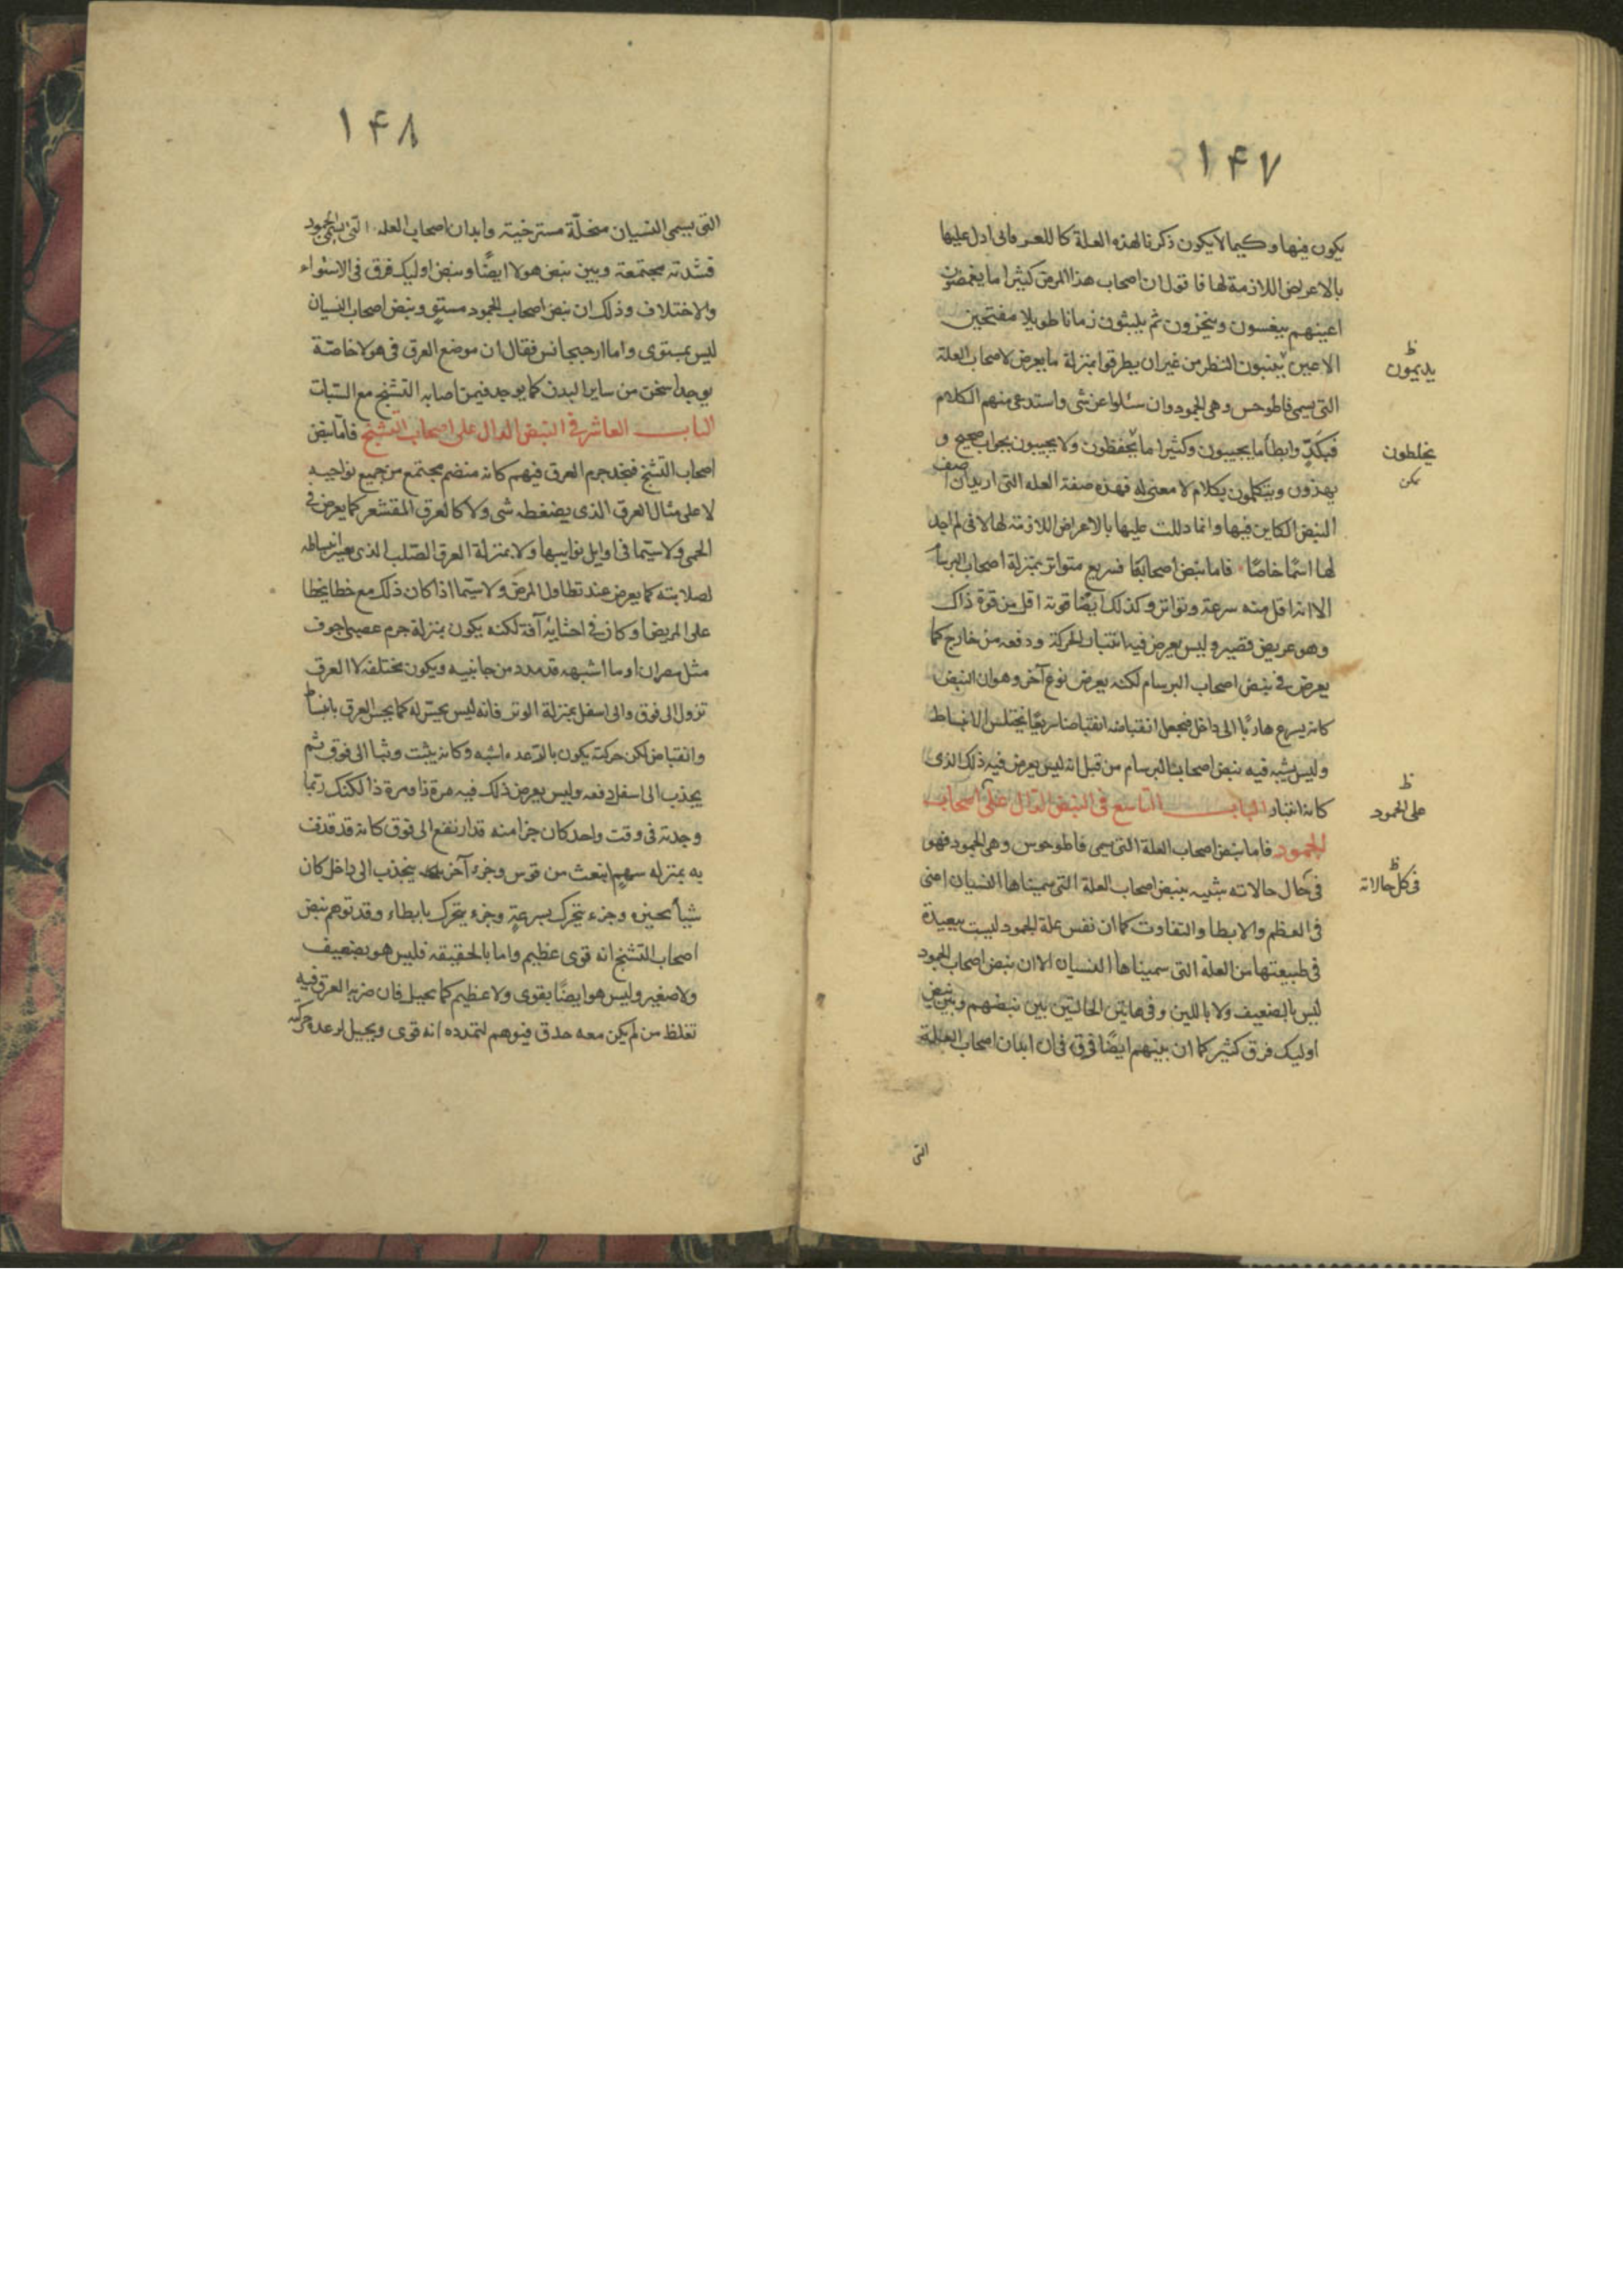 ١۴٧
يكون فيها وكيما لا يكون ذكرنا لهذه العلة كاللعز فانى ادل عليها
بالاعراض اللازمة لها فاقول ان اصحاب هذا المرض كثيرا ما يغمضون
اعينهم ينعسون وينخزون ثم يلبثون زمانا طويلا مفتحين
الاعين النظر من غير ان يطرقوا بمنزلة ما يعرض لاصحاب العلة
يديمون
التى يسمى قاطوحس وهى الجمود وان سئلوا عن شى واستدعى منهم الكلام
فبكدّ وابطأ ما يجيبون وكثيرا ما ولا يجيبون بجواب صحيح و
يخلطون
يهذون ويتكلمون بكلام لا معنى له فهذه صفة العله التى اريد ان اصف
يمكن
النبض الكاين فيها وانما دللت عليها بالاعراض اللازمة لها لانى لم اجد
لها اسمًا خاصًا فاما نبض اصحابها فسريع متواتر بمنزلة اصحاب البرسام
الا انه اقل منه سرعة وتواتر وكذلك ايضًا قوته اقل من قوة ذاك
وهو عريض قصير وليس يعرض فيه انتبات الحركة ودفعه من خارج كما
يعرض فى نبض اصحاب البرسام لكنه يعرض نوع آخر وهو ان النبض
كانه يسرع هاربًا الى داخل فيجعل انقباضه انقباضا سريعًا يختلس الانبساط
وليس يشبه فيه نبض اصحاب البرسام من قبل انه ليس يعرض فيه ذلك الذى
كانه انتباد الباب التاسع فى النبض الدال على اصحاب
على الجمود
الجمود فاما نبض اصحاب العلة التى يسمى قاطوحوس وهى الجمود فهو
فى حال حالاته شبيه بنبض اصحاب العلة التى سميناها النسيان اعنى
فى كل حالاته
فى العظم والابطا والتفاوت كما ان نفس علة الجمود ليست ببعيدة
فى طبيعتها من العلة التى سميناها النسيان الا ان نبض اصحاب الجمود
ليس بالضعيف ولا باللين وفى هاتين الحالتين بين نبضهم وبين نبض
اوليك فرق كثير كما ان بينهم ايضًا فرق فى ان ابدان اصحاب العلة
التى
١۴٨
التى يسمى النسيان منحلّة مسترخية وابدان اصحاب العله التى يسمى الجمود
مجتمعة وبين نبض هولا ايضًا ونبض اوليك فرق فى الاستواء
والاختلاف وذلك ان نبض اصحاب الجمود مستو ونبض اصحاب النسيان
ليس بمستوى واما ارجيجانس فقال ان موضع العرق فى هولا خاصّة
يوجد اسخن من ساير البدن كما يوجد فيمن اصابه التشنج مع السّبات
الباب العاشر فى النبض الدال على اصحاب التشنج فاما نبض
اصحاب التشنج فنجد جرم العرق فيهم كانه منضم مجتمع من جميع نواحيه
لا على مثال العرق الذى يضغطه شى ولا كالعرق المقشعر كما يعرض فى
الحمى ولا سيّما فى اوايل نوايبها ولا بمنزلة العرق الصّلب الذى يعسر انبساطه
لصلابته كما يعرض عند تطاول المرض ولا سيّما اذا كان ذلك مع خطا يخطا
على المريض او كان فى احشايه آفة لكنه يكون بمنزلة جرم عصبى اجوف
مثل مصران او ما اشبهه قد مدد من جانبيه ويكون مختلفه لا العرق
تزول الى فوق والى اسفل بمنزلة الوتر فانه ليس يحسّ له كما يحس العرق بانبساط
وانقباض لكن حركته يكون بالرّعدة اشبه وكانه يثبت وثبا الى فوق ثم
يجذب الى اسفل دفعه وليس يعرض ذلك فيه مرة ذا ومرة ذا لكنك ربّما
وجدته فى وقت واحد كان جزا منه قد ارتفع الى فوق كانه قد قذف
به بمنزله سهم انبعث من قوس وجزء آخر ينجذب الى داخل كان
شيأ وجزء يتحرك بسرعةٍ وجزء يتحرك بابطاء وقد توهم نبض
اصحاب التشنج انه قوى عظيم واما بالحقيقه فليس هو بضعيف
ولا صغير وليس هو ايضًا بقوى ولا عظيم كما يخيل فان ضربه العرق فيه
تغلظ من لم يكن معه حذق فيوهم لتمدده انه قوى ويخيل لرعدة حركته